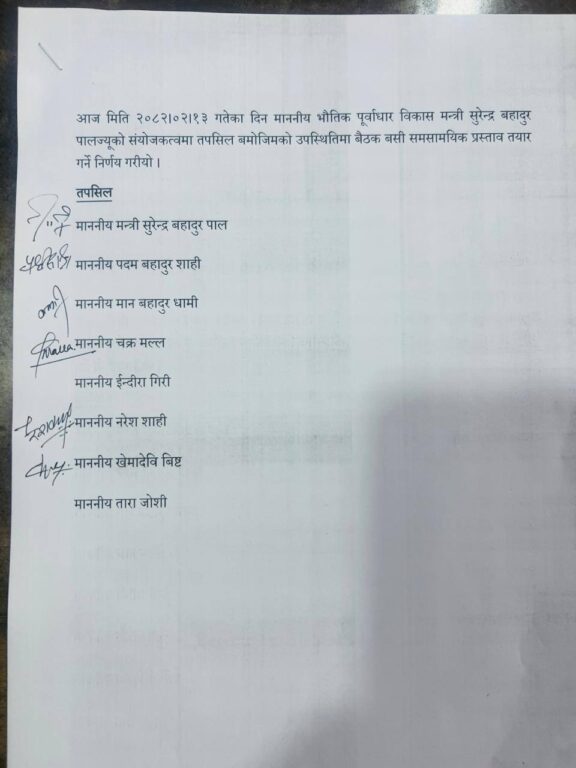 आज मिति २०८२।०२।१३ गतेका दिन माननीय भौतिक पूर्वाधार विकास मन्त्री सुरेन्द्र बहादुर
पालज्यूको संयोजकत्वमा तपसिल बमोजिमको उपस्थितिमा बैठक बसी समसामयिक प्रस्ताव तयार
गर्ने निर्णय गरीयो ।
तपसिल
माननीय मन्त्री सुरेन्द्र बहादुर पाल
माननीय पदम बहादुर शाही
माननीय मान बहादुर धामी
माननीय चक्र मल्ल
माननीय ईन्दीरा गिरी
माननीय नरेश शाही
माननीय खेमादेवि बिष्ट
माननीय तारा जोशी